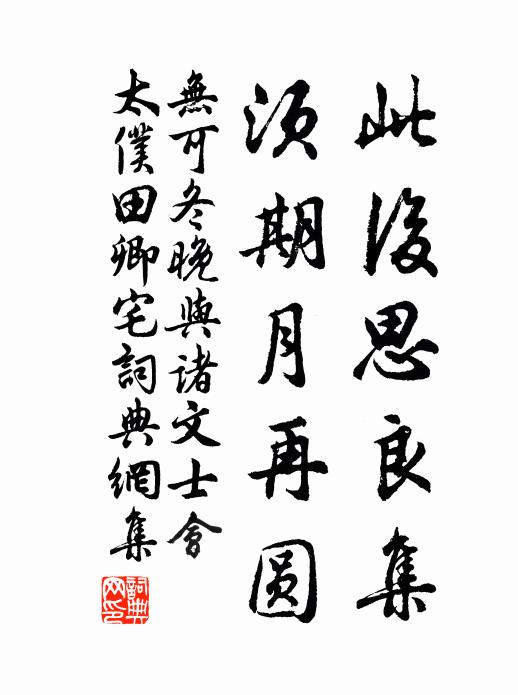 此後思良集
須期月再圆
無可冬晚與诸文士會
太僕田卿宅詞典網集
詞典網印